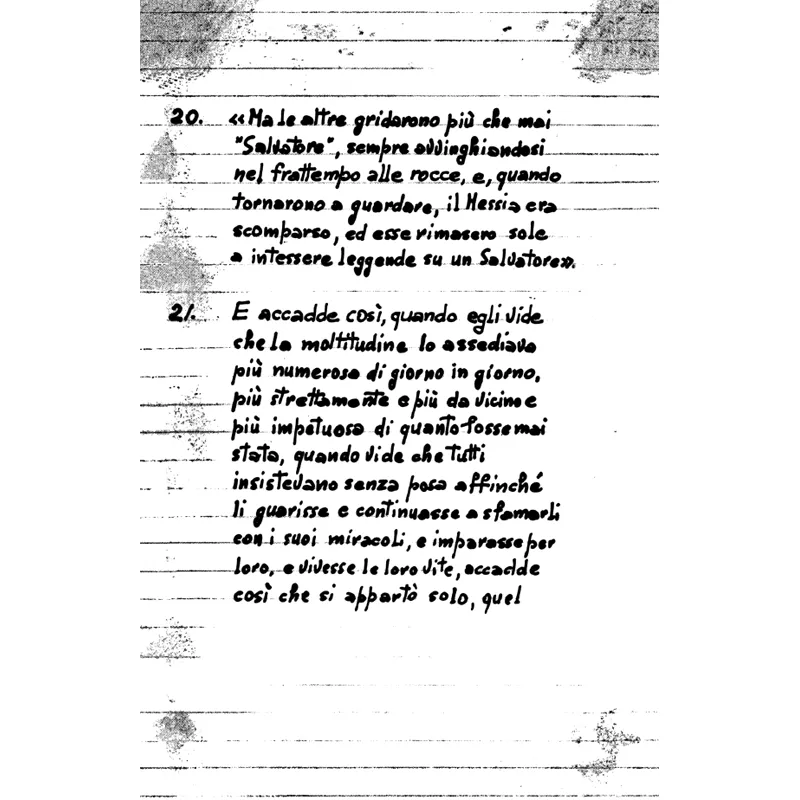 20. «Ma le altre gridarono più che mai
"Salvatore", sempre avvinghiandosi
nel frattempo alle rocce, e, quando
tornarono a guardare, il Messia era
scomparso, ed esse rimasero sole
a intessere leggende su un Salvatore».
21. E accadde così, quando egli vide
che la moltitudine lo assediava
più numerosa di giorno in giorno,
più strettamente e più da vicino e
più impetuosa di quanto fosse mai
stata, quando vide che tutti
insistevano senza posa affinché
li guarisse e continuasse a sfamarli
con i suoi miracoli, e imparasse per
loro, e vivesse le loro vite, accadde
così che si appartò solo, quel